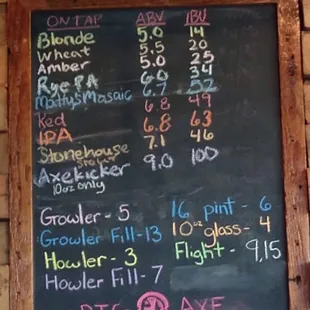 ON TAP ABV IBU
Blonde 5.0 14
Wheat 5.5 20
Amber 5.0 25
Rye PA 6.0 34
Matty's Mosaic 6.7 52
Red 6.8 49
IPA 6.8 63
Stonehouse 7.1 46
Stout
Axekicker 9.0 100
10oz only
Growler - 5
Growler Fill - 13
Howler - 3
Howler Fill - 7
16 pint - 6
10oz glass - 4
Flight - 9,15
BIG AXE